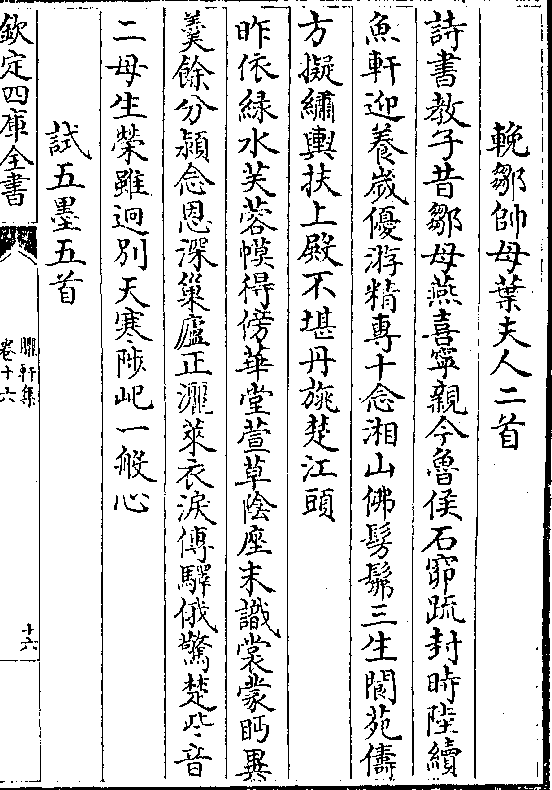 輓鄒帥母葉夫人二首
詩書教子昔鄒母燕喜寧親今魯侯石窌疏封時陸續
魚軒迎養歲優游精專十念湘山佛髣髴三生閬苑儔
方擬繡輿扶上殿不堪丹旐楚江頭
昨依緑水芙蓉幙得傍華堂萱草陰座末識裳蒙眄異
羹餘分潁念恩深巢廬正灑萊衣淚傳驛俄驚楚些音
二母生榮雖逈別天寒陟屺一般心
試五墨五首
欽定四庫全書
臞軒集
卷十六
十六